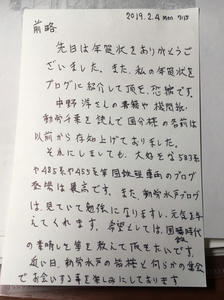 2019.2.4 mon 7:15
前略
先日は年賀状をありがとうご
ざいました。また、私の年賀状を
ブログに紹介して頂き、恐縮です。
中野洋さんの書籍や機関誌・
動労千葉を訳して国分機の名前は
以前から存知上げておりました。
それにしましても、大好きな583系
や485系や455系等国鉄型車両のブログ
登場は裏点です。また、動労水戸ブログ
は見ていて勉強になりますし、元気を与
えてくれます。希望としては、国鉄時代
の素晴しさ等を教えて頂きたいです。
近い日、動労水戸の皆様と何らかの集会
でお会いする事を楽しみにしております